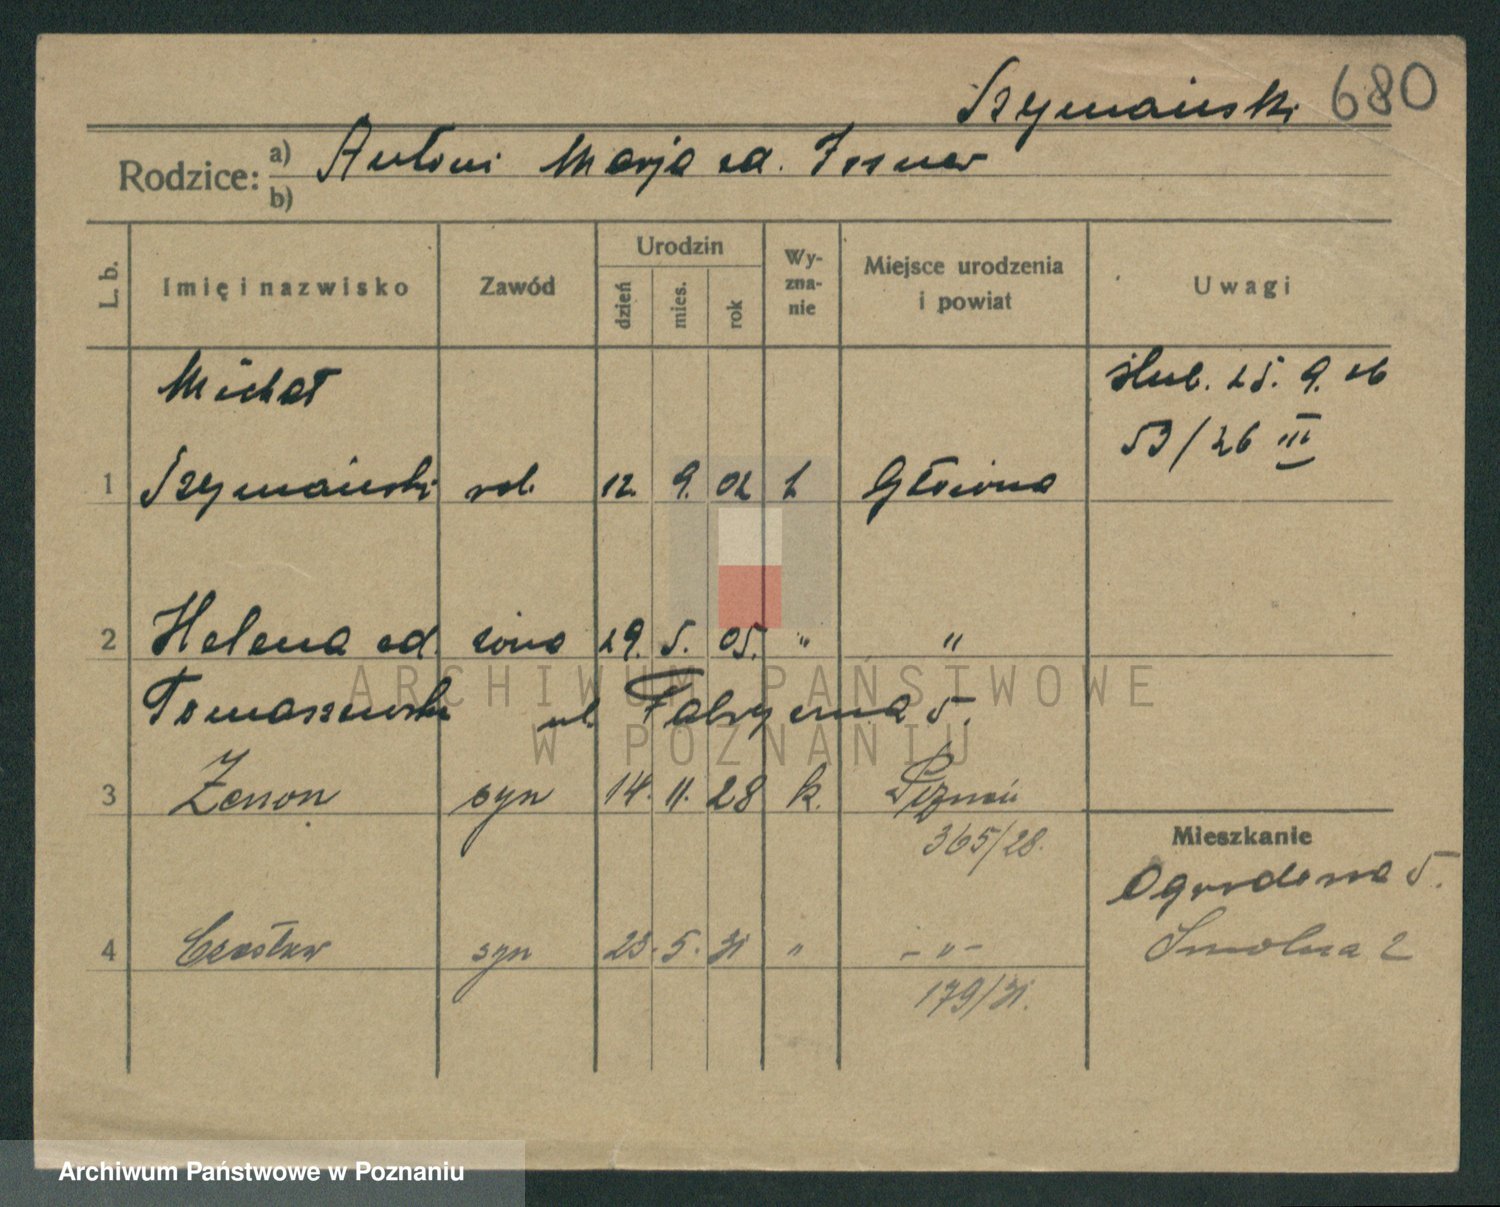 Szymański 680
Rodzice: a) Antoni Marja zd.
b)
L. b. Imię i nazwisko Zawód Urodzin dzień mies. rok Wy-zna-nie Miejsce urodzenia i powiat Uwagi
Michał ślub. 25. 9. 26
53/26 III
1 Szymański rob. 12. 9. 02 k Główna
2 Helena zd. żona 29. 5. 05. " "
Tomaszewska ul. Fabryczna 5.
3 Zenon syn 14. 11. 28 k. Poznań
365/28.
Mieszkanie
Ogrodowa 5.
4 Czesław syn 23. 5. 31 " - " -
Smolna 2
179/31.
ARCHIWUM PAŃSTWOWE
W POZNANIU
Archiwum Państwowe w Poznaniu